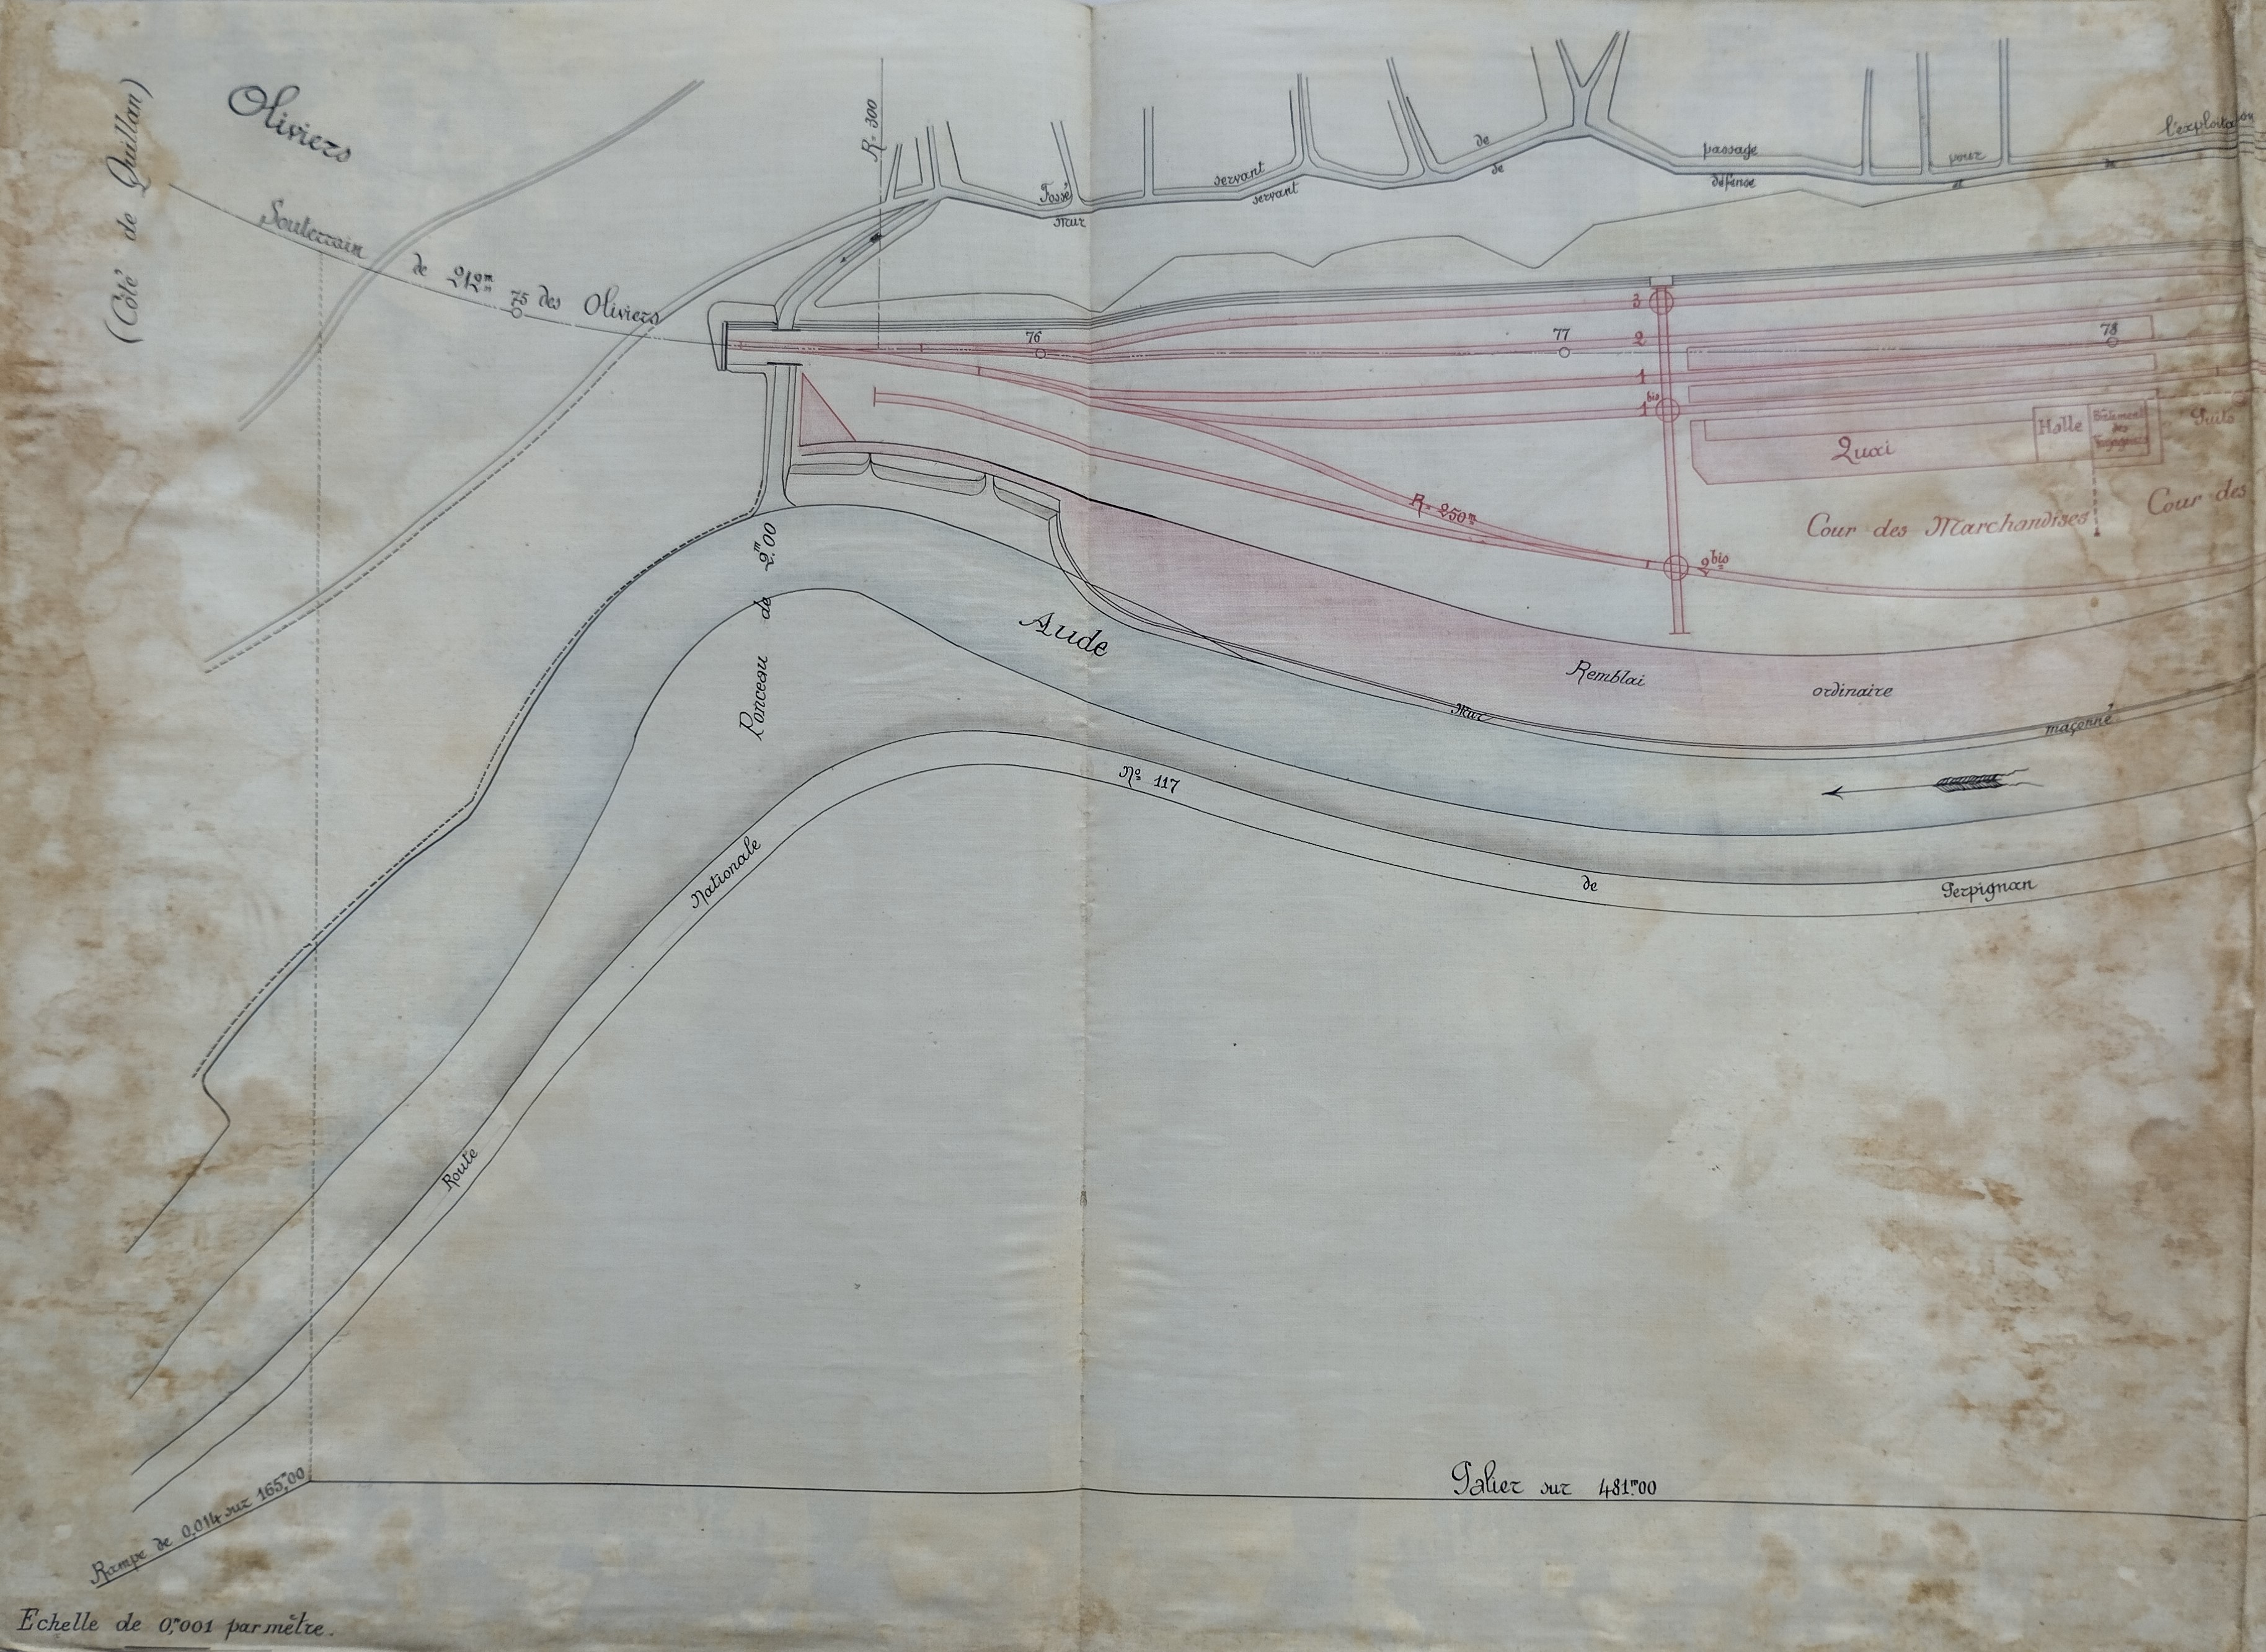 (Côté de Quillan)
Oliviers
Souterrain de 212m 75 des Oliviers
R= 300
Fossé servant de passage pour l'exploitation
Mur servant de défense et de
76
77
78
3
2
1
1bis
2bis
R= 250m
Quai
Halle
Bâtiment des Voyageurs
Puits
Cour des Marchandises
Cour des
Ponceau de 2m00
Aude
Remblai ordinaire
Mur maçonné
Route Nationale No 117 de Perpignan
Palier sur 481m00
Rampe de 0,014 sur 165m00
Echelle de 0m001 par mètre.